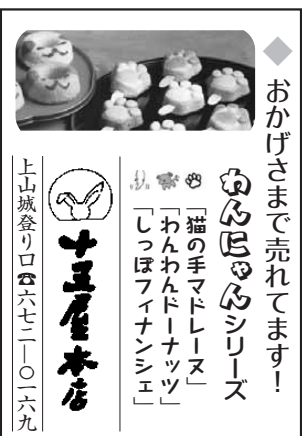 ◆おかげさまで売れてます!
わんにゃんシリーズ
「猫の手マドレーヌ」
「わんわんドーナッツ」
「しっぽフィナンシェ」
十五屋本店
上山城登り口☎六七二―〇一六九